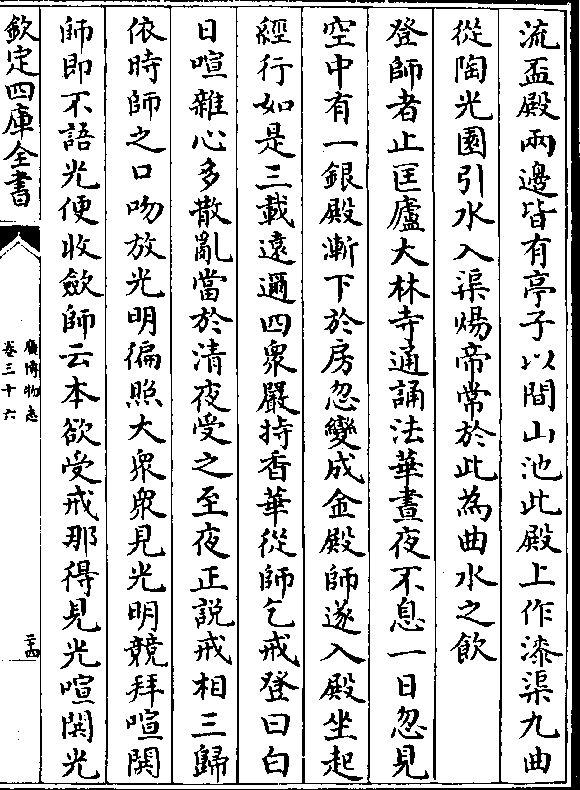 流盃殿兩邊皆有亭子以間山池此殿上作漆渠九曲
從陶光園引水入渠煬帝常於此為曲水之飲
登師者止匡廬大林寺通誦法華晝夜不息一日忽見
空中有一銀殿漸下於房忽變成金殿師遂入殿坐起
經行如是三載遠邇四衆嚴持香華從師乞戒登曰白
日喧雜心多散亂當於清夜受之至夜正説戒相三歸
依時師之口吻放光明徧照大衆衆見光明競拜喧闘
師即不語光便收斂師云本欲受戒那得見光喧闘光
欽定四庫全書
廣博物志
卷三十六
二十四